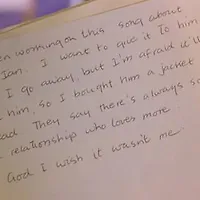 en working on this song about
Ian. I want to give it to him
I go away, but I'm afraid it'll
him. So I bought him a jacket
ead They say there's always so
relationship who loves more.
God I wish it wasn't me.